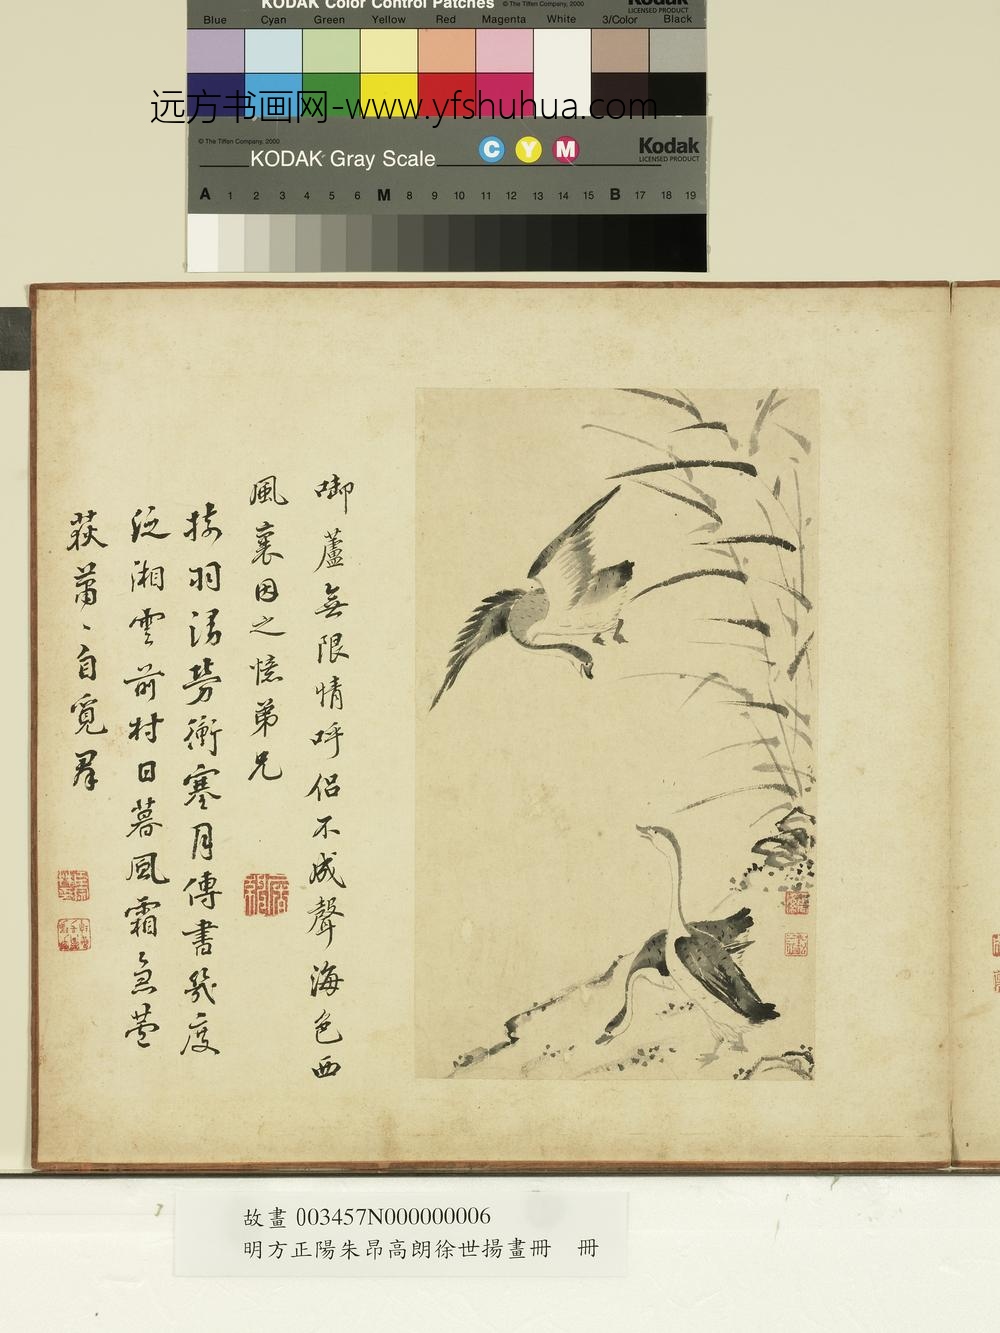 KODAK Color Control Patches © The Tiffen Company, 2000 Kodak
LICENSED PRODUCT
Blue Cyan Green Yellow Red Magenta White 3/Color Black
远方书画网-www.yfshuhua.com
© The Tiffen Company, 2000
KODAK Gray Scale C Y M Kodak
LICENSED PRODUCT
A 1 2 3 4 5 6 M 8 9 10 11 12 13 14 15 B 17 18 19
啣蘆無限情呼侣不成聲海色西
風裏因之憶弟兄
羽清勞衡塞月傳書幾度
泛湘雲前村日暮風霜急
荻蕭、自覓群
故畫 003457N000000006
明方正陽朱昂高朗徐世揚畫冊 冊